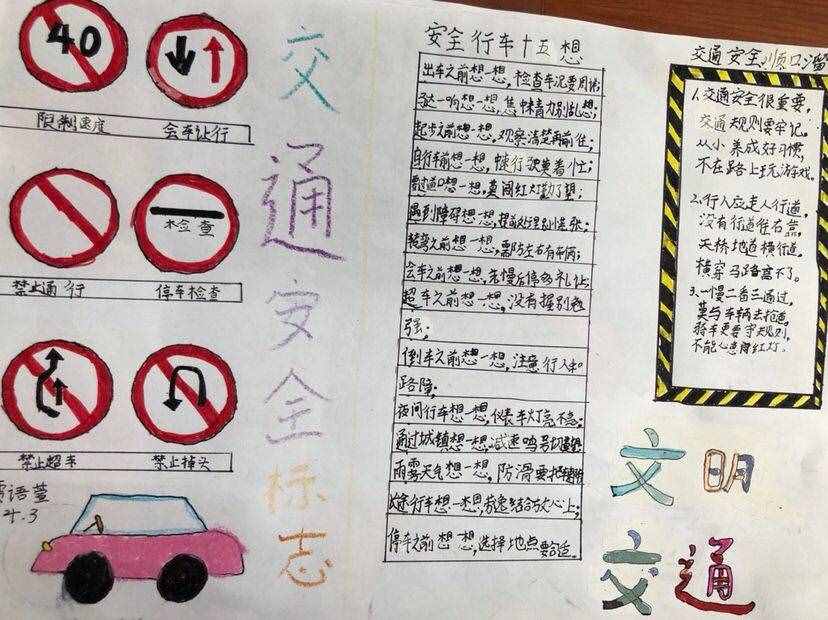 40
限制速度
会车让行
检查
禁止通行
停车检查
禁止超车
禁止掉头
语萱
4.3
交通安全标志
安全行车十五想
出车之前想一想，检查车况要周详；
马达一响想一想，集中精力别乱想；
起步之前想一想，观察清楚再前往；
自行车前想一想，中速行驶莫着
要过道口想一想，莫闯红灯勤了望；
遇到障碍想一想，提前处理别慌张；
转弯之前想一想，需防左右有车辆；
会车之前想一想，先慢后停多礼让；
超车之前想一想，没有握别勉
强；
倒车之前想一想，注意行人和
路障；
夜间行车想一想，仪表车灯亮不亮；
通过城镇想一想，减速鸣号切
雨雾天气想一想，防滑要把
长途行车想一想，劳逸结合放心上；
停车之前想一想，选择地点要合适。
交通安全顺口溜
1、交通安全很重要，
交通规则要牢记。
从小养成好习惯，
不在路上玩游戏。
2、行人应走人行道，
没有行道往右靠，
天桥地道横行道。
横穿马路离不了。
3、一慢二看三通过，
莫与车辆去抢道。
骑车更要守规则，
不能心急闯红灯。
文明
交通